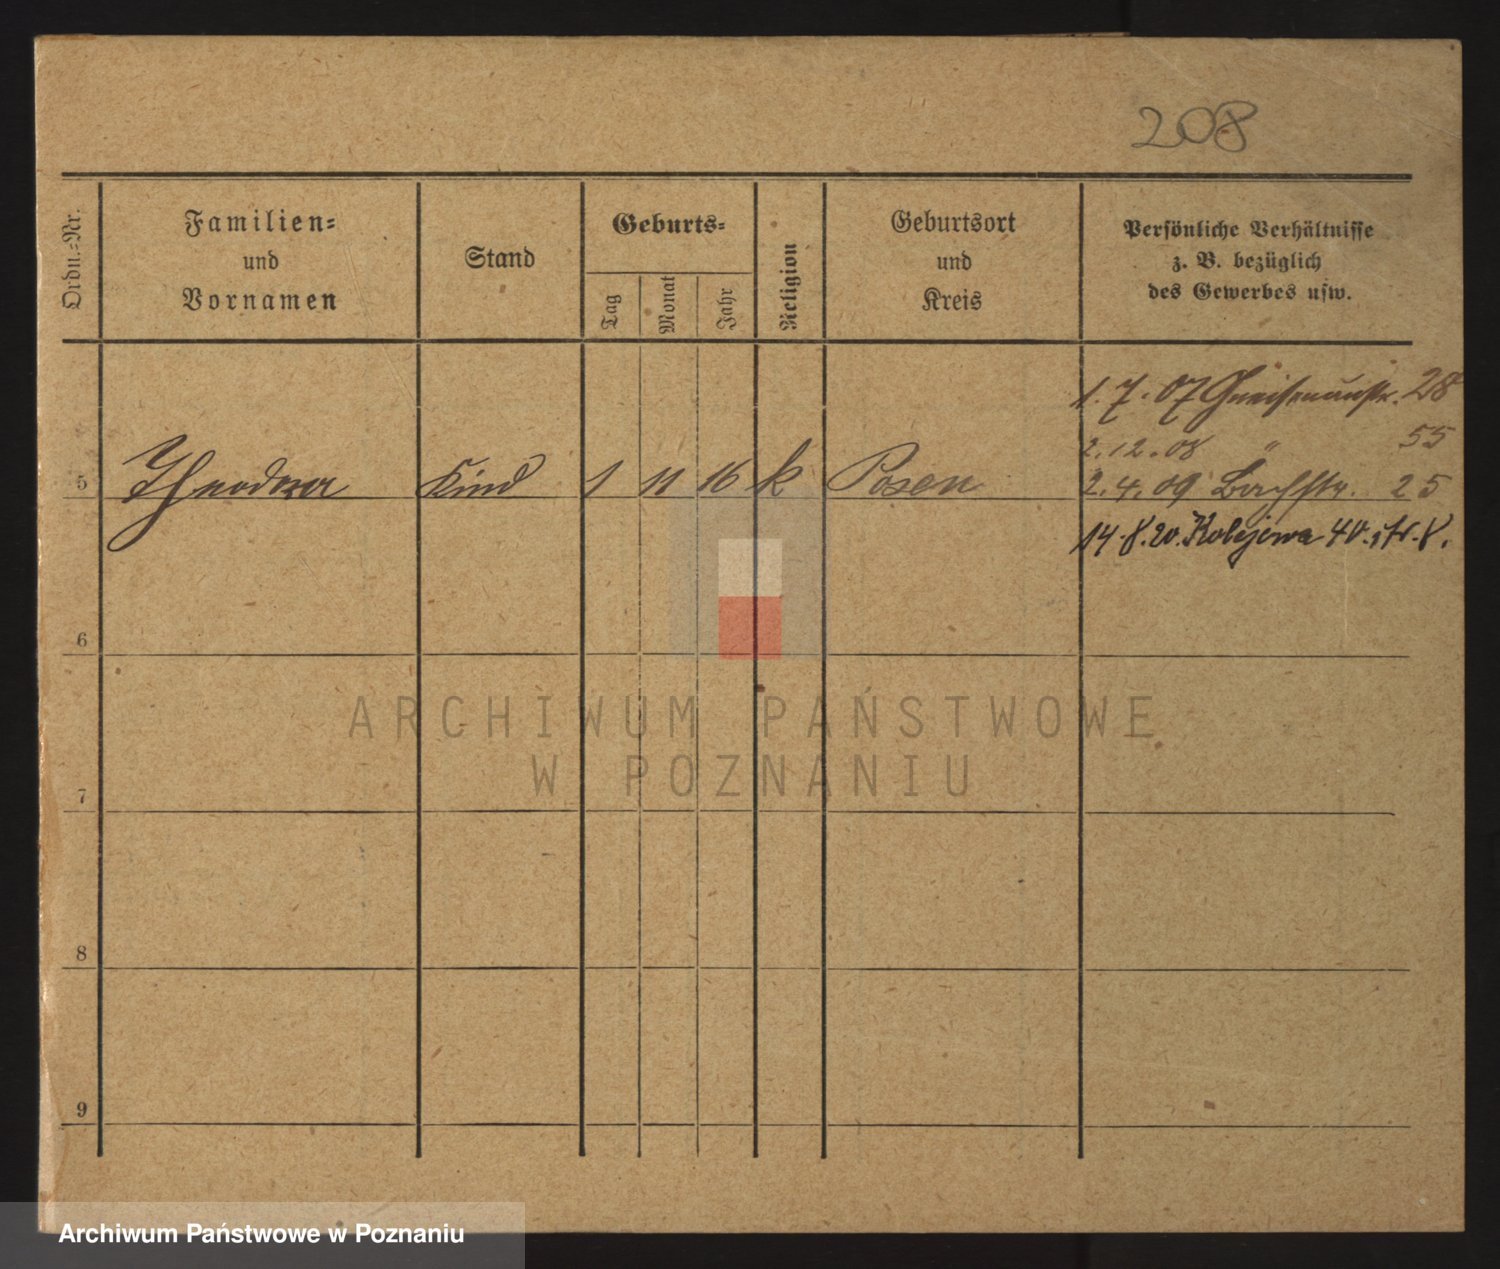 208
Ordn.-Nr.
Familien-
und
Vornamen
Stand
Geburts-
Tag
Monat
Jahr
Religion
Geburtsort
und
Kreis
Persönliche Verhältnisse
z. B. bezüglich
des Gewerbes usw.
1.7.07 Gneisenaustr. 28
2.12.08 " 55
5 Theodora Kind 1 11 16 k Posen 2.4.09 Bachstr. 25
14.8.20. Kolejowa 40. str. 8.
6
ARCHIWUM PAŃSTWOWE
W POZNANIU
7
8
9
Archiwum Państwowe w Poznaniu